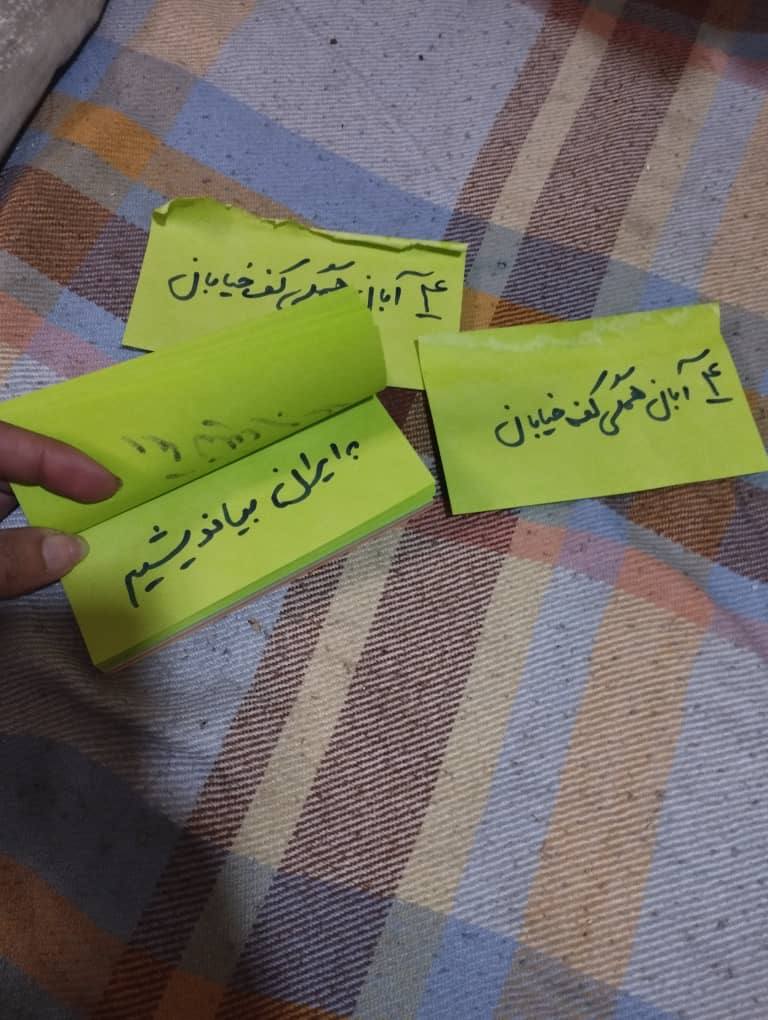 ۴ آبان همگی کف خیابان
۴ آبان همگی کف خیابان
به ایران بیاندیشیم